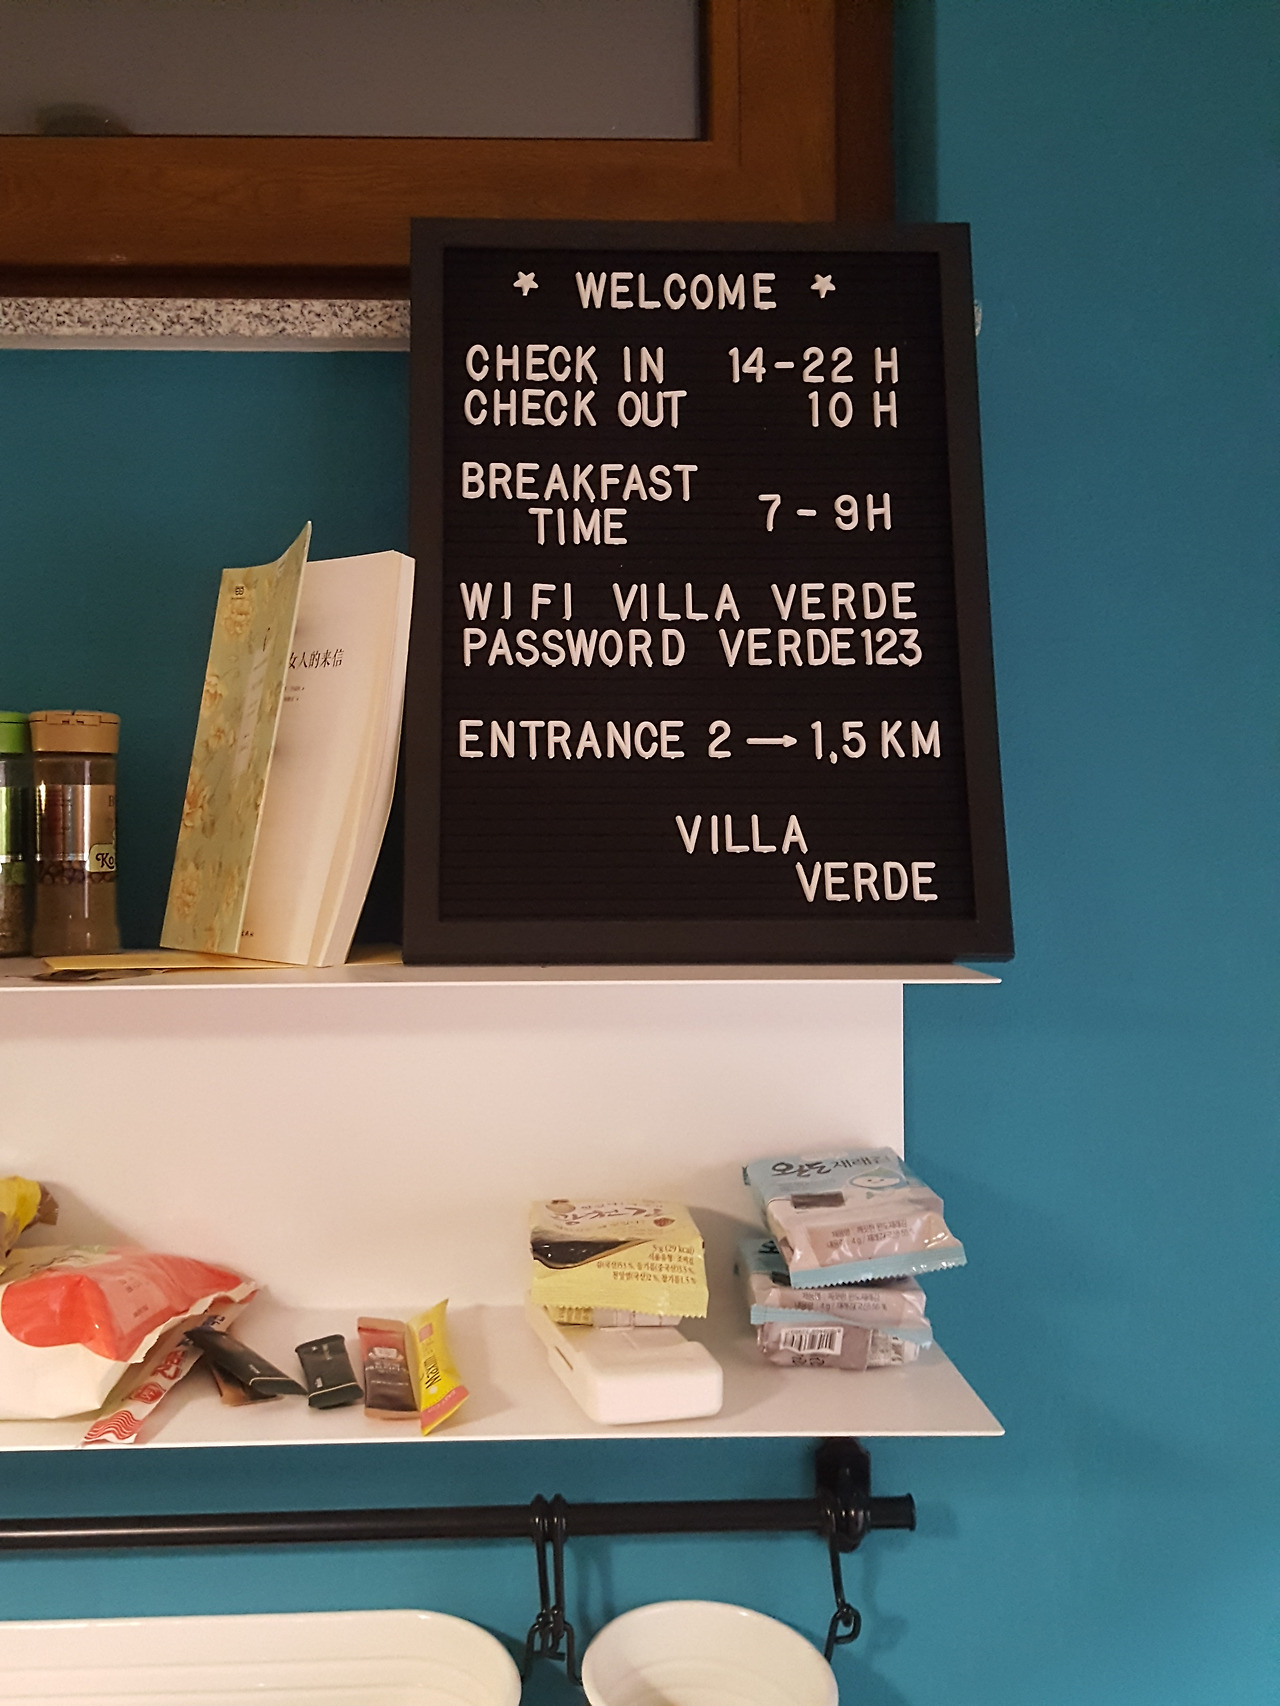 * WELCOME *
CHECK IN 14-22 H
CHECK OUT 10 H
BREAKFAST
TIME 7-9H
WIFI VILLA VERDE
PASSWORD VERDE123
ENTRANCE 2 → 1,5 KM
VILLA
VERDE
女人的来信
Ko
완도재래김
5g (29 kcal)
Maxim